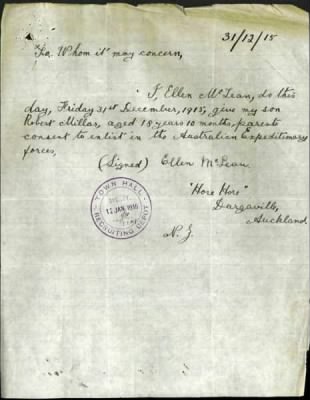 31/12/15
To Whom it may concern,
I Ellen McLean, do this
day, Friday 31st December, 1915, give my son
Robert Millar, aged 18 years 10 months, parents
consent to enlist in the Australian Expeditionary
forces,
(Signed) Ellen McLean
"Hore Hore"
Dargaville,
Auckland
N.Z.
TOWN HALL
12 JAN 1916
RECRUITING DEPOT